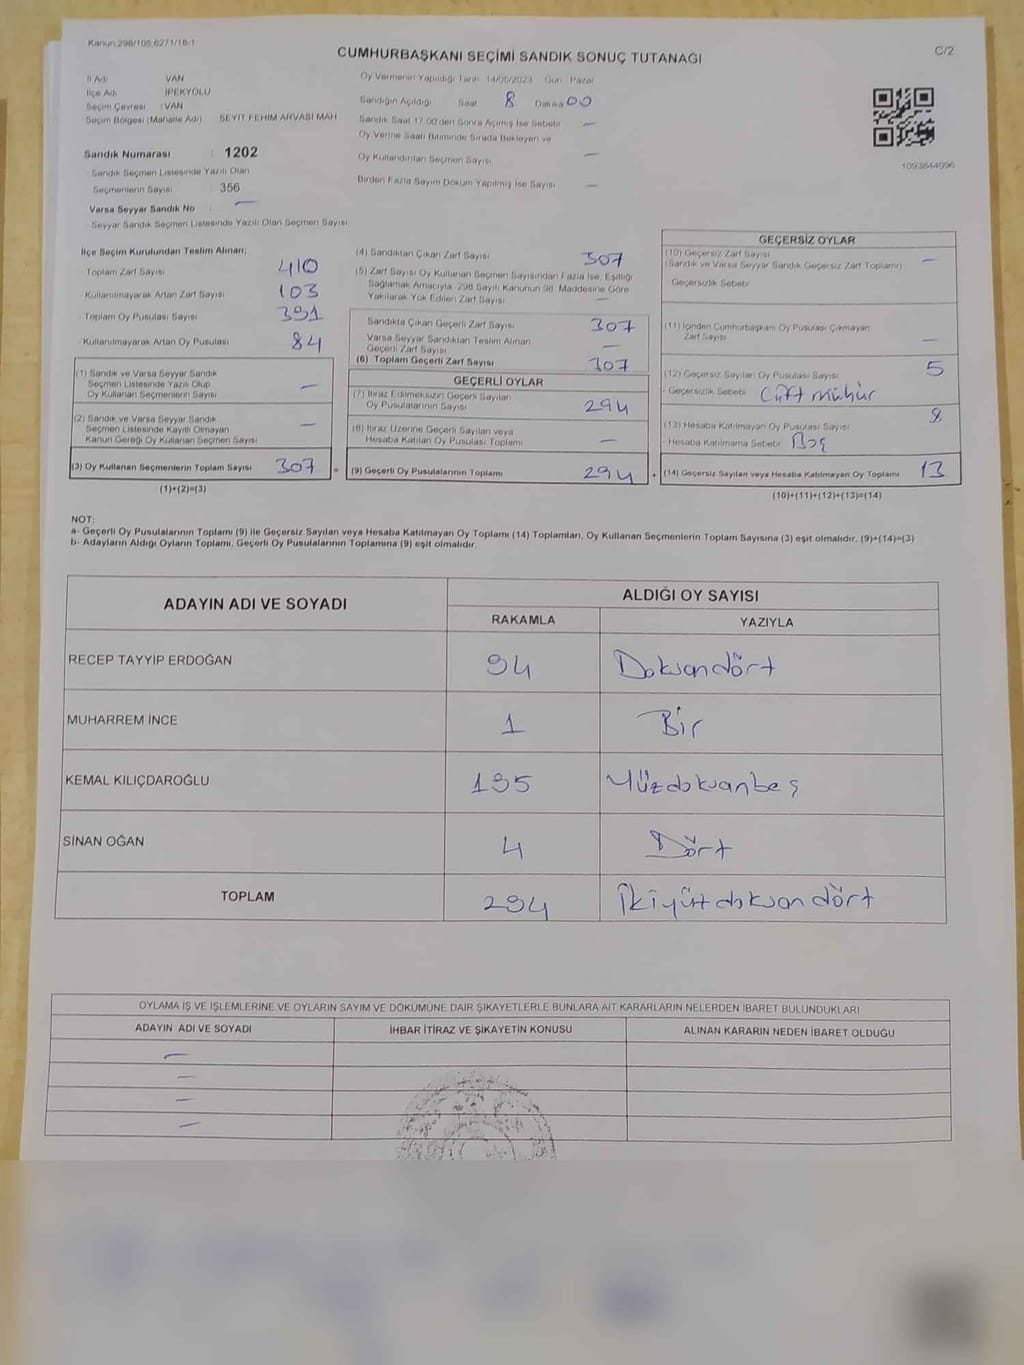 Kanun:298/105,6271/18-1
C/2
CUMHURBAŞKANI SEÇİMİ SANDIK SONUÇ TUTANAĞI
İl Adı VAN
İlçe Adı İPEKYOLU
Seçim Çevresi : VAN
Seçim Bölgesi (Mahalle Adı) SEYİT FEHİM ARVASİ MAH
Oy Vermenin Yapıldığı Tarih 14/05/2023 Gün : Pazar
Sandığın Açıldığı Saat 8 Dakika 00
Sandık Saat 17.00'den Sonra Açılmış İse Sebebi —
Oy Verme Saati Bitiminde Sırada Bekleyen ve
Oy Kullandırılan Seçmen Sayısı —
Birden Fazla Sayım Döküm Yapılmış İse Sayısı —
1093844096
Sandık Numarası : 1202
Sandık Seçmen Listesinde Yazılı Olan
Seçmenlerin Sayısı : 356
Varsa Seyyar Sandık No : —
Seyyar Sandık Seçmen Listesinde Yazılı Olan Seçmen Sayısı
İlçe Seçim Kurulundan Teslim Alınan;
Toplam Zarf Sayısı 410
Kullanılmayarak Artan Zarf Sayısı 103
Toplam Oy Pusulası Sayısı 391
Kullanılmayarak Artan Oy Pusulası 84
(1) Sandık ve Varsa Seyyar Sandık
Seçmen Listesinde Yazılı Olup
Oy Kullanan Seçmenlerin Sayısı —
(2) Sandık ve Varsa Seyyar Sandık
Seçmen Listesinde Kayıtlı Olmayan
Kanun Gereği Oy Kullanan Seçmen Sayısı —
(3) Oy Kullanan Seçmenlerin Toplam Sayısı 307 =
(1)+(2)=(3)
(4) Sandıktan Çıkan Zarf Sayısı 307
(5) Zarf Sayısı Oy Kullanan Seçmen Sayısından Fazla İse, Eşitliği
Sağlamak Amacıyla 298 Sayılı Kanunun 98. Maddesine Göre
Yakılarak Yok Edilen Zarf Sayısı —
Sandıkta Çıkan Geçerli Zarf Sayısı 307
Varsa Seyyar Sandıktan Teslim Alınan
Geçerli Zarf Sayısı —
(6) Toplam Geçerli Zarf Sayısı 307
GEÇERLİ OYLAR
(7) İtiraz Edilmeksizin Geçerli Sayılan
Oy Pusulalarının Sayısı 294
(8) İtiraz Üzerine Geçerli Sayılan veya
Hesaba Katılan Oy Pusulası Toplamı —
(9) Geçerli Oy Pusulalarının Toplamı 294 +
GEÇERSİZ OYLAR
(10) Geçersiz Zarf Sayısı
(Sandık ve Varsa Seyyar Sandık Geçersiz Zarf Toplamı) —
- Geçersizlik Sebebi
(11) İçinden Cumhurbaşkanı Oy Pusulası Çıkmayan
Zarf Sayısı —
(12) Geçersiz Sayılan Oy Pusulası Sayısı 5
- Geçersizlik Sebebi Çift mühür
(13) Hesaba Katılmayan Oy Pusulası Sayısı 8
- Hesaba Katılmama Sebebi Boş
(14) Geçersiz Sayılan veya Hesaba Katılmayan Oy Toplamı 13
(10)+(11)+(12)+(13)=(14)
NOT:
a- Geçerli Oy Pusulalarının Toplamı (9) ile Geçersiz Sayılan veya Hesaba Katılmayan Oy Toplamı (14) Toplamları, Oy Kullanan Seçmenlerin Toplam Sayısına (3) eşit olmalıdır. (9)+(14)=(3)
b- Adayların Aldığı Oyların Toplamı, Geçerli Oy Pusulalarının Toplamına (9) eşit olmalıdır.
ADAYIN ADI VE SOYADI ALDIĞI OY SAYISI
RAKAMLA YAZIYLA
RECEP TAYYİP ERDOĞAN 94 Doksandört
MUHARREM İNCE 1 Bir
KEMAL KILIÇDAROĞLU 195 Yüzdoksanbeş
SİNAN OĞAN 4 Dört
TOPLAM 294 İkiyüzdoksandört
OYLAMA İŞ VE İŞLEMLERİNE VE OYLARIN SAYIM VE DÖKÜMÜNE DAİR ŞİKAYETLERLE BUNLARA AİT KARARLARIN NELERDEN İBARET BULUNDUKLARI
ADAYIN ADI VE SOYADI İHBAR İTİRAZ VE ŞİKAYETİN KONUSU ALINAN KARARIN NEDEN İBARET OLDUĞU
—
—
—
—